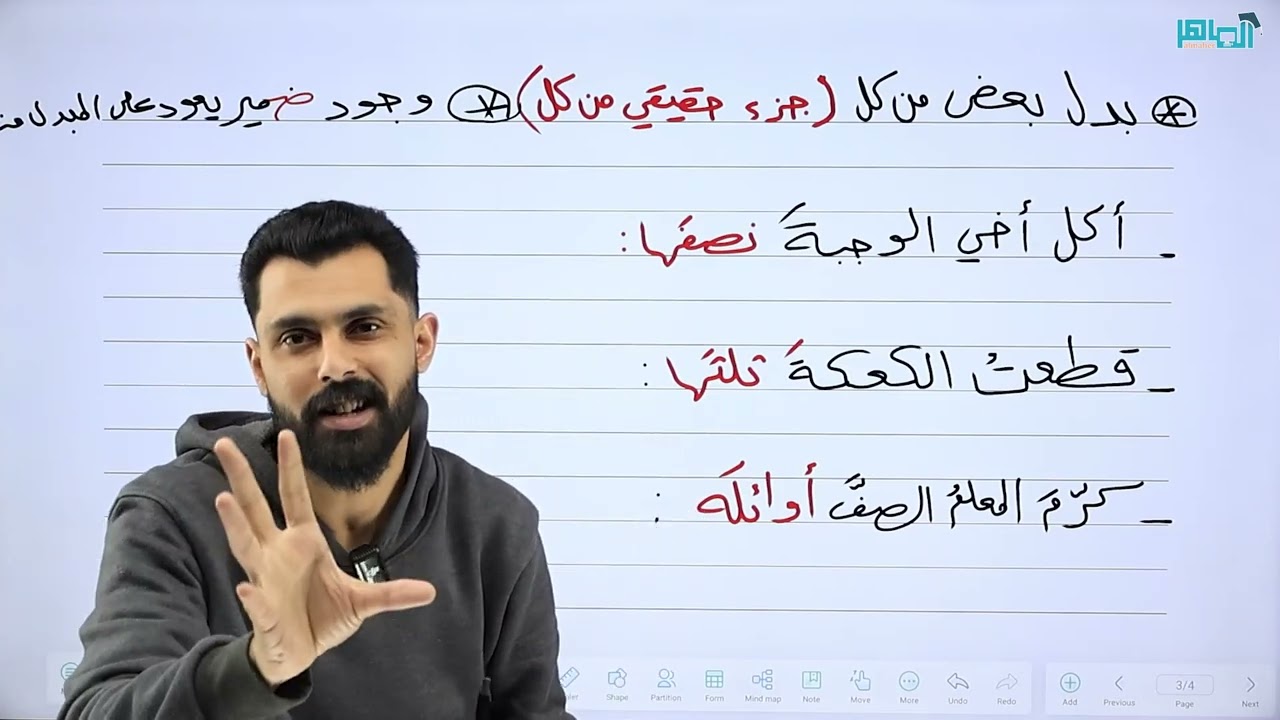 الماهر
almaher
بدل بعض من كل (جزء حقيقي من كل) وجود ضمير يعود على المبدل منه
- أكل أخي الوجبةَ نصفَها :
- قطعتُ الكعكةَ ثلثَها :
- كرّمَ المعلمُ الصفَّ أوائلَه :
Shape Partition Form Mind map Note Move More Undo Redo Add Previous 3/4 Page Next